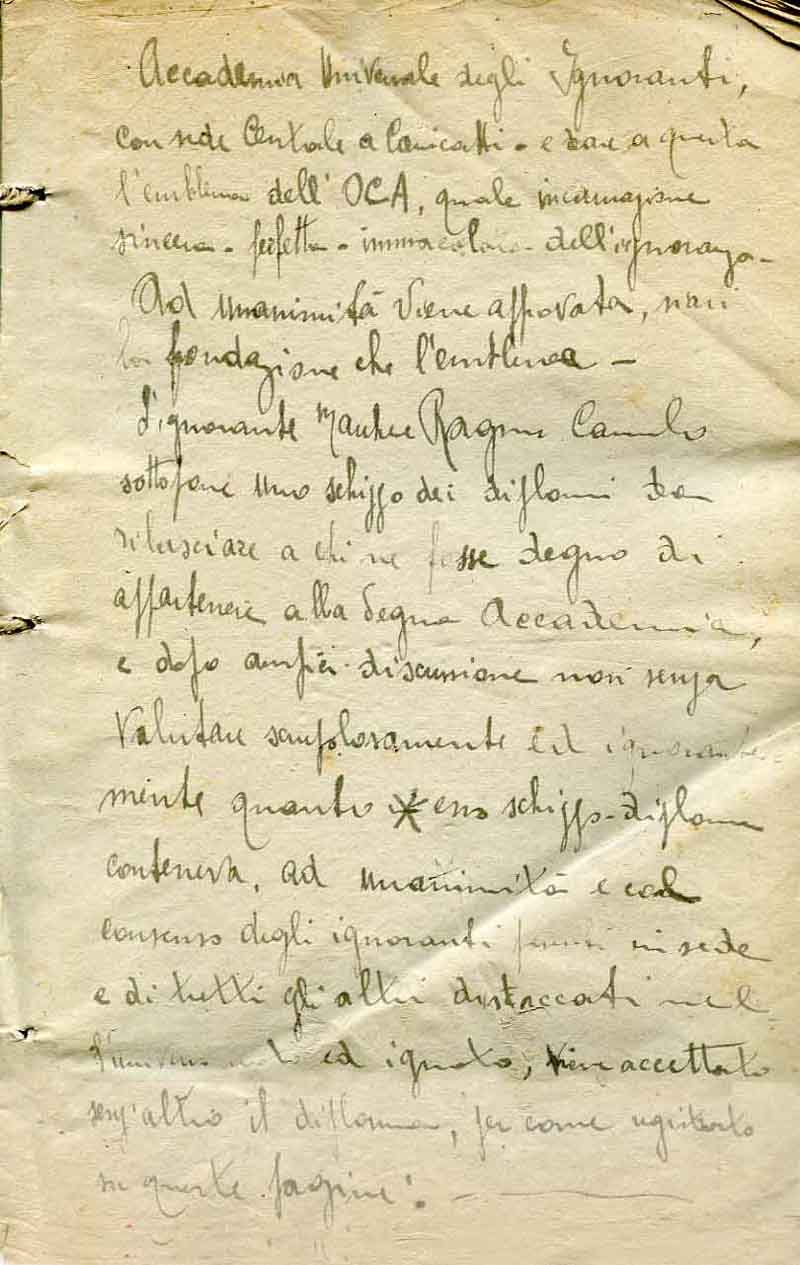 Accademia Universale degli Ignoranti,
con sede Centrale a Canicatti - e dare a questa
l'emblema dell'OCA, quale incarnazione
sincera - perfetta - immacolata - dell'ignoranza -
Ad unanimità viene approvata, sia
la fondazione che l'emblema -
L'ignorante Ragusa Camillo
sottopone uno schizzo dei diplomi da
rilasciare a chi ne fosse degno di
appartenere alla degna Accademia,
e dopo discussione non senza
valutare scrupolosamente ed ignorante-
mente quanto esso schizzo-diploma
conteneva, ad unanimità e col
consenso degli ignoranti in sede
e di tutti gli altri distaccati nel-
l'universo noto ed ignoto, viene accettato
senz'altro il diploma, per come
su queste pagine. -